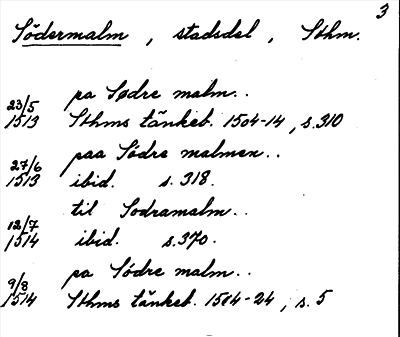 3
Södermalm , stadsdel , Sthm.
pa Sødre malm..
23/5 1513 Sthms tänkeb. 1504-14, s.310
paa Södre malmen..
27/6 1513 ibid. s.318.
til Sodramalm..
12/7 1514 ibid. s.370.
pa Södre malm..
9/8 1514 Sthms tänkeb. 1514-24, s.5